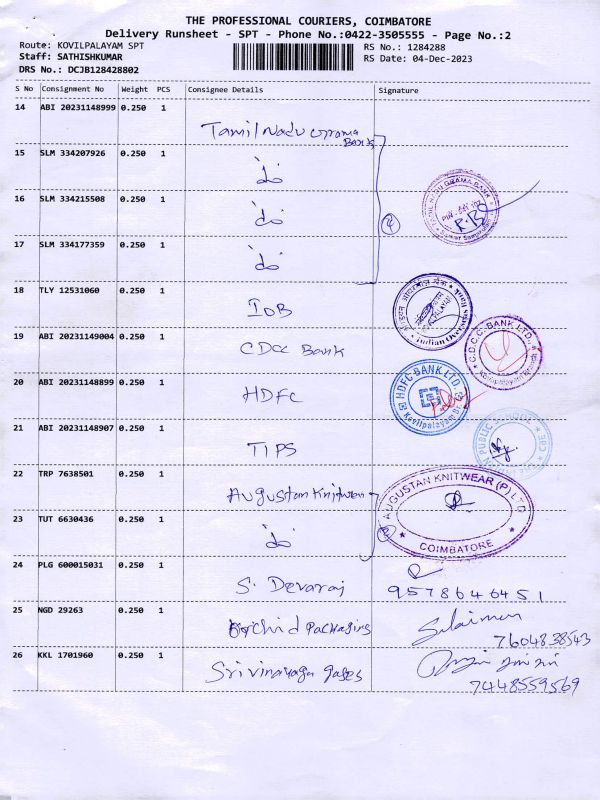 THE PROFESSIONAL COURIERS, COIMBATORE
Delivery Runsheet - SPT - Phone No.:0422-3505555 - Page No.:2
Route: KOVILPALAYAM SPT
RS No.: 1284288
Staff: SATHISHKUMAR
RS Date: 04-Dec-2023
DRS No.: DCJB128428802
S No Consignment No Weight PCS Consignee Details Signature
14 ABI 20231148999 0.250 1
Tamil Nadu Grama Bank
15 SLM 334207926 0.250 1
do
16 SLM 334215508 0.250 1
do
TAMIL NADU GRAMA BANK
R.B
17 SLM 334177359 0.250 1
do
4
18 TLY 12531060 0.250 1
IOB
Indian Overseas Bank
19 ABI 20231149004 0.250 1
CDCC Bank
C.D.C.C. BANK LTD.,
Kovilpalayam Branch
20 ABI 20231148899 0.250 1
HDFC
HDFC BANK LTD.
Kovilpalayam Br.
21 ABI 20231148907 0.250 1
TIPS
PUBLIC SCHOOL
CBE
22 TRP 7638501 0.250 1
Augustan Knitwear
AUGUSTAN KNITWEAR (P) LTD
COIMBATORE
23 TUT 6630436 0.250 1
do
2
24 PLG 600015031 0.250 1
S. Devaraj
9578646451
25 NGD 29263 0.250 1
Orchid Packaging
Sulaiman
7604838543
26 KKL 1701960 0.250 1
Srivinayaga gases
7448559569